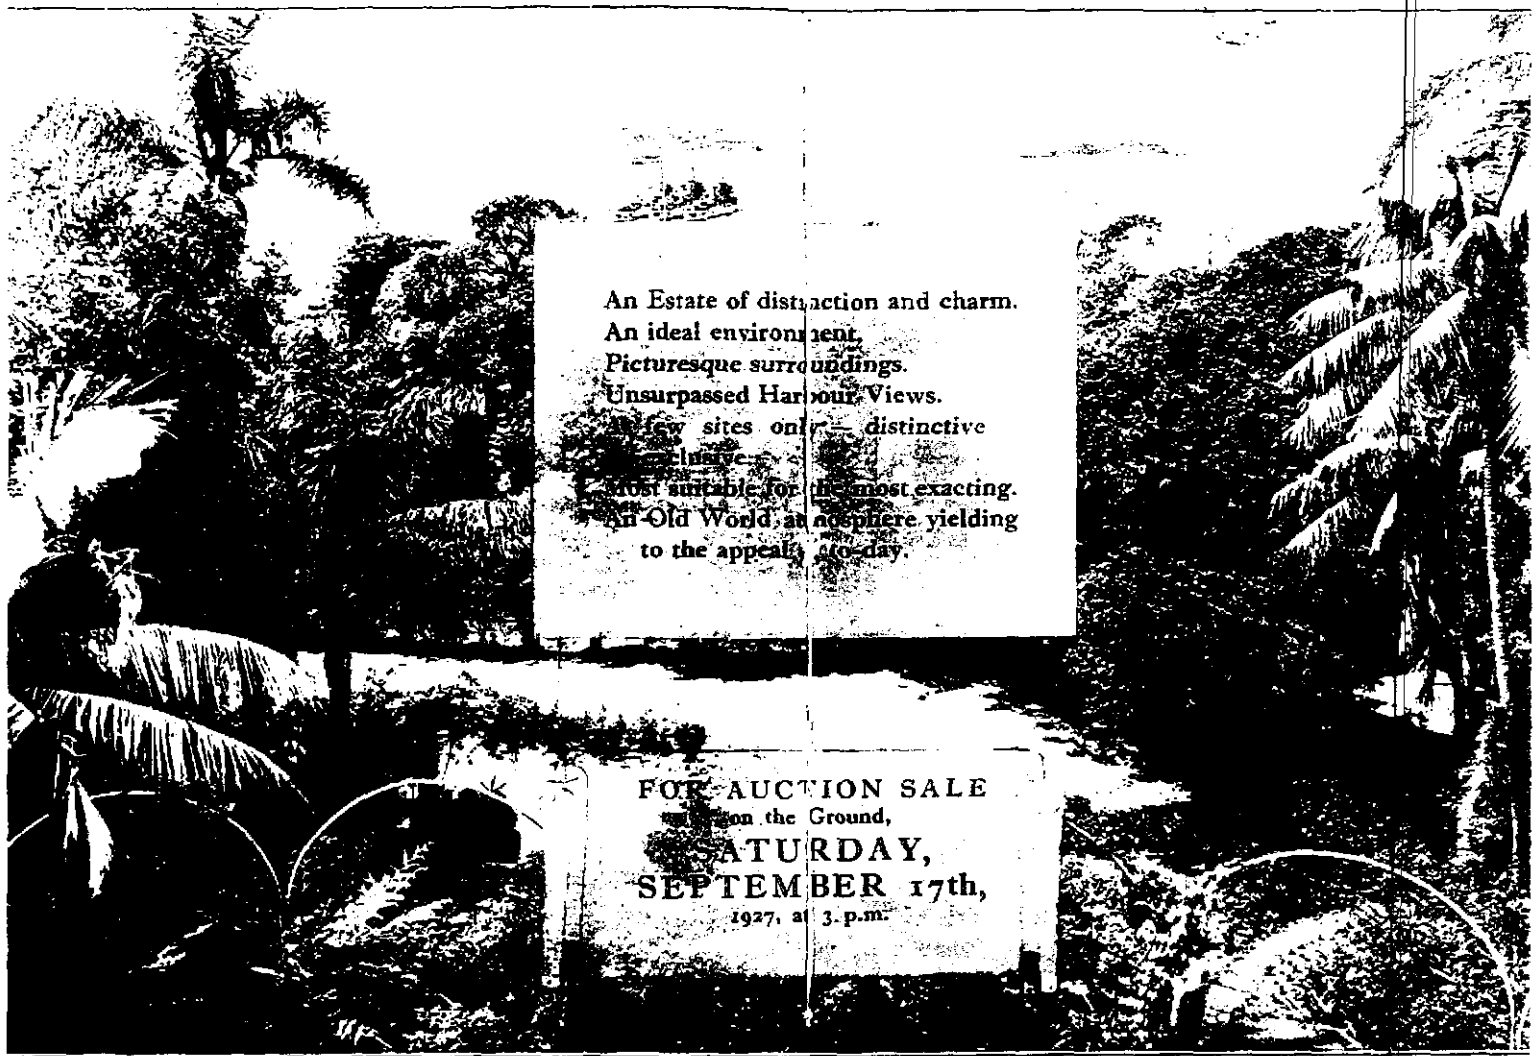 An Estate of distinction and charm.
An ideal environment,
Picturesque surroundings.
Unsurpassed Harbour Views.
few sites only — distinctive
exclusive
Most suitable for the most exacting.
An Old World atmosphere yielding
to the appeal to-day.
FOR AUCTION SALE
on the Ground,
SATURDAY,
SEPTEMBER 17th,
1927, at 3 p.m.